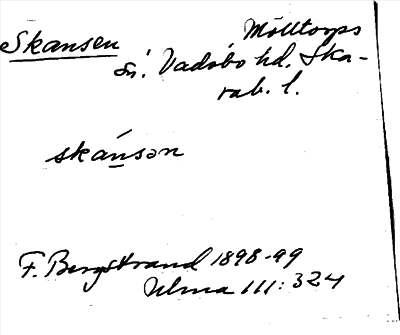 Skansen
Mölltorps
sn. Vadsbo hd. Ska-
rab. l.
skánsən
F. Bergstrand 1898-99
Ulma 111: 324